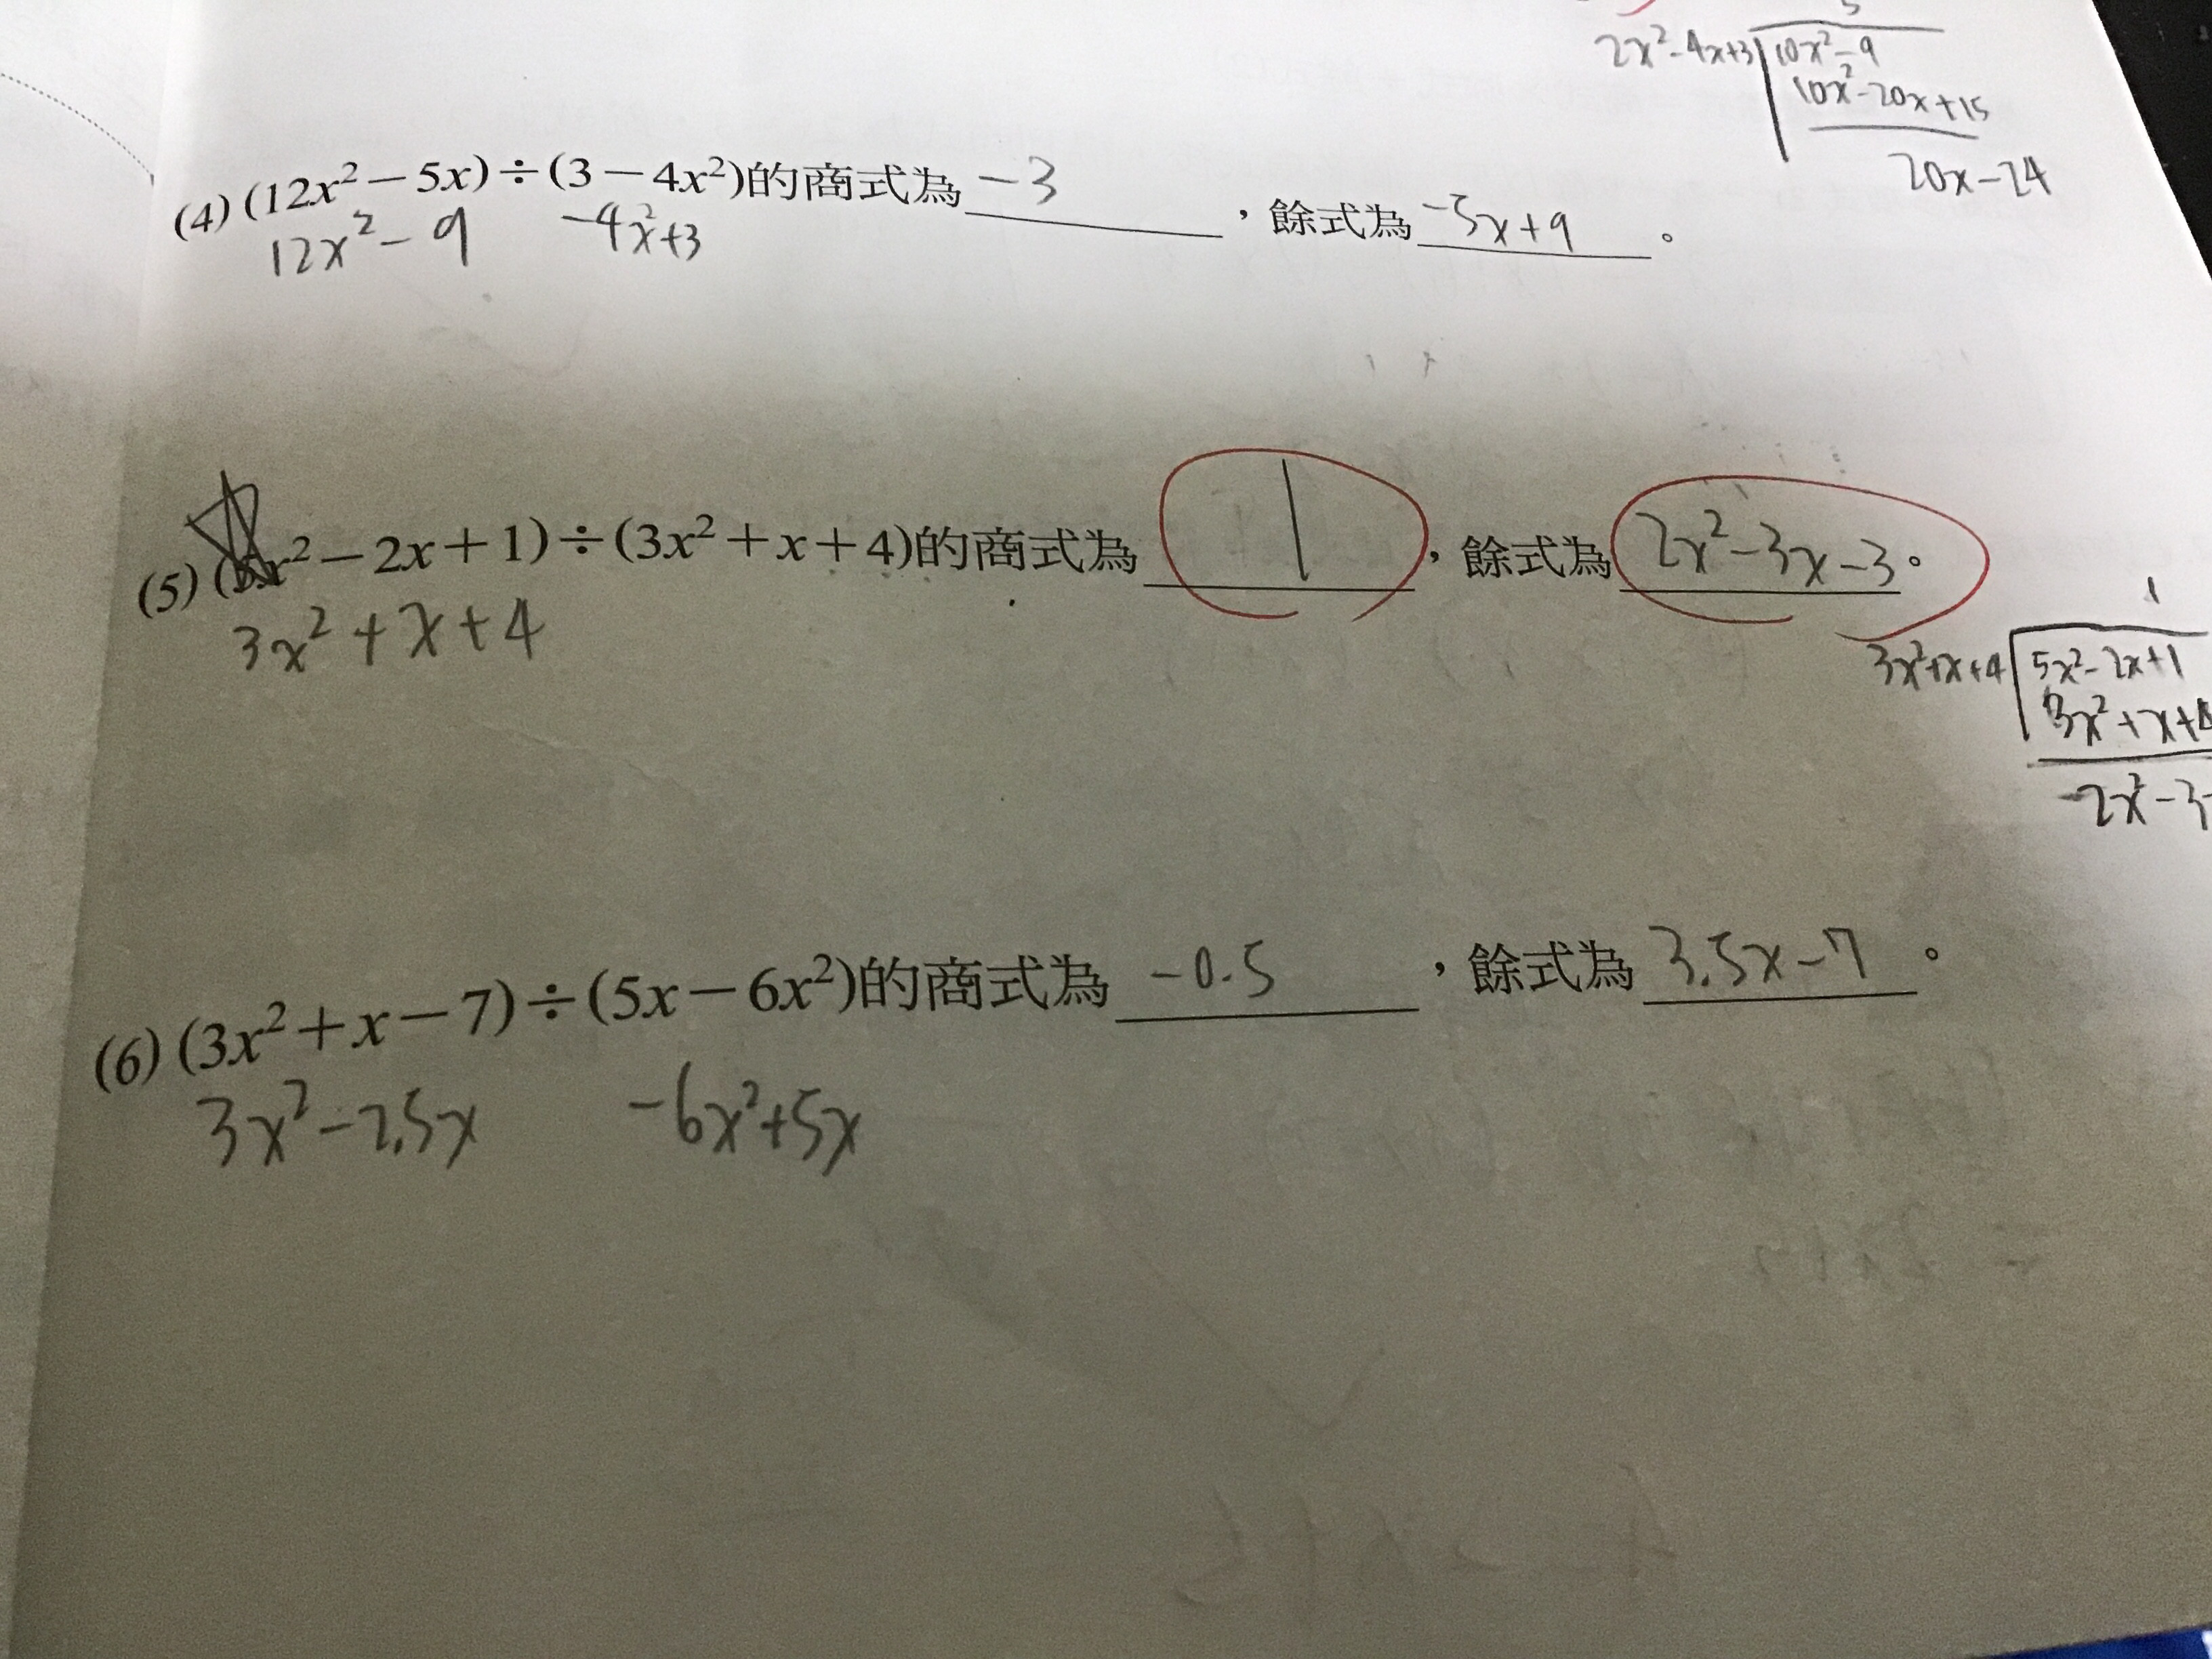 5
2x²-4x+3 10x²-9
10x²-20x+15
20x-24
(4) (12x²-5x)÷(3-4x²)的商式為 -3 ,餘式為 -5x+9 。
12x²-9 -4x²+3
(5) ( x²-2x+1)÷(3x²+x+4)的商式為 1 ,餘式為 2x²-3x-3 。
3x²+x+4
1
3x²+x+4 5x²-2x+1
3x²+x+4
-2x²-3
(6) (3x²+x-7)÷(5x-6x²)的商式為 -0.5 ,餘式為 3.5x-7 。
3x²-2.5x -6x²+5x